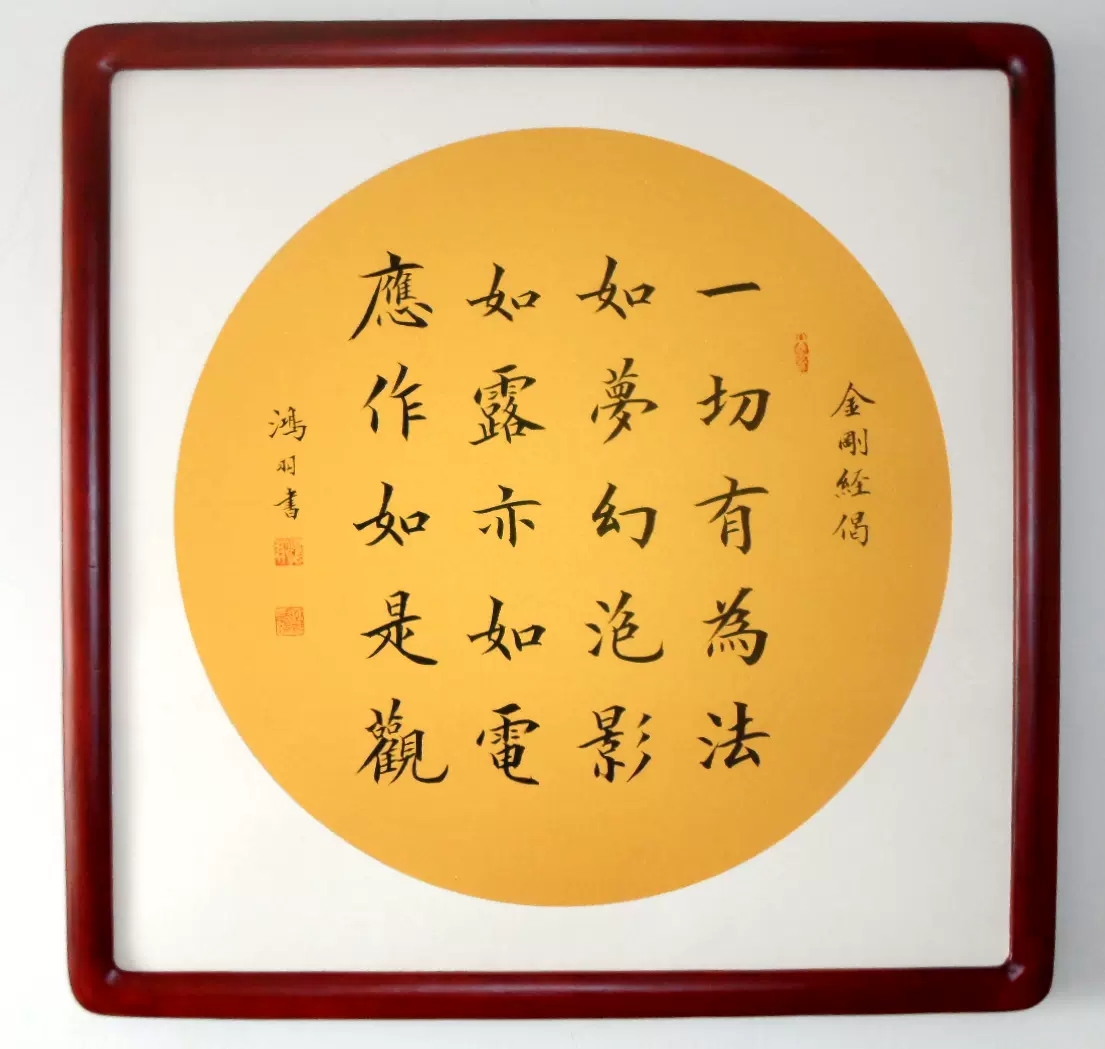 金剛經偈
一切有為法
如夢幻泡影
如露亦如電
應作如是觀
鴻羽書